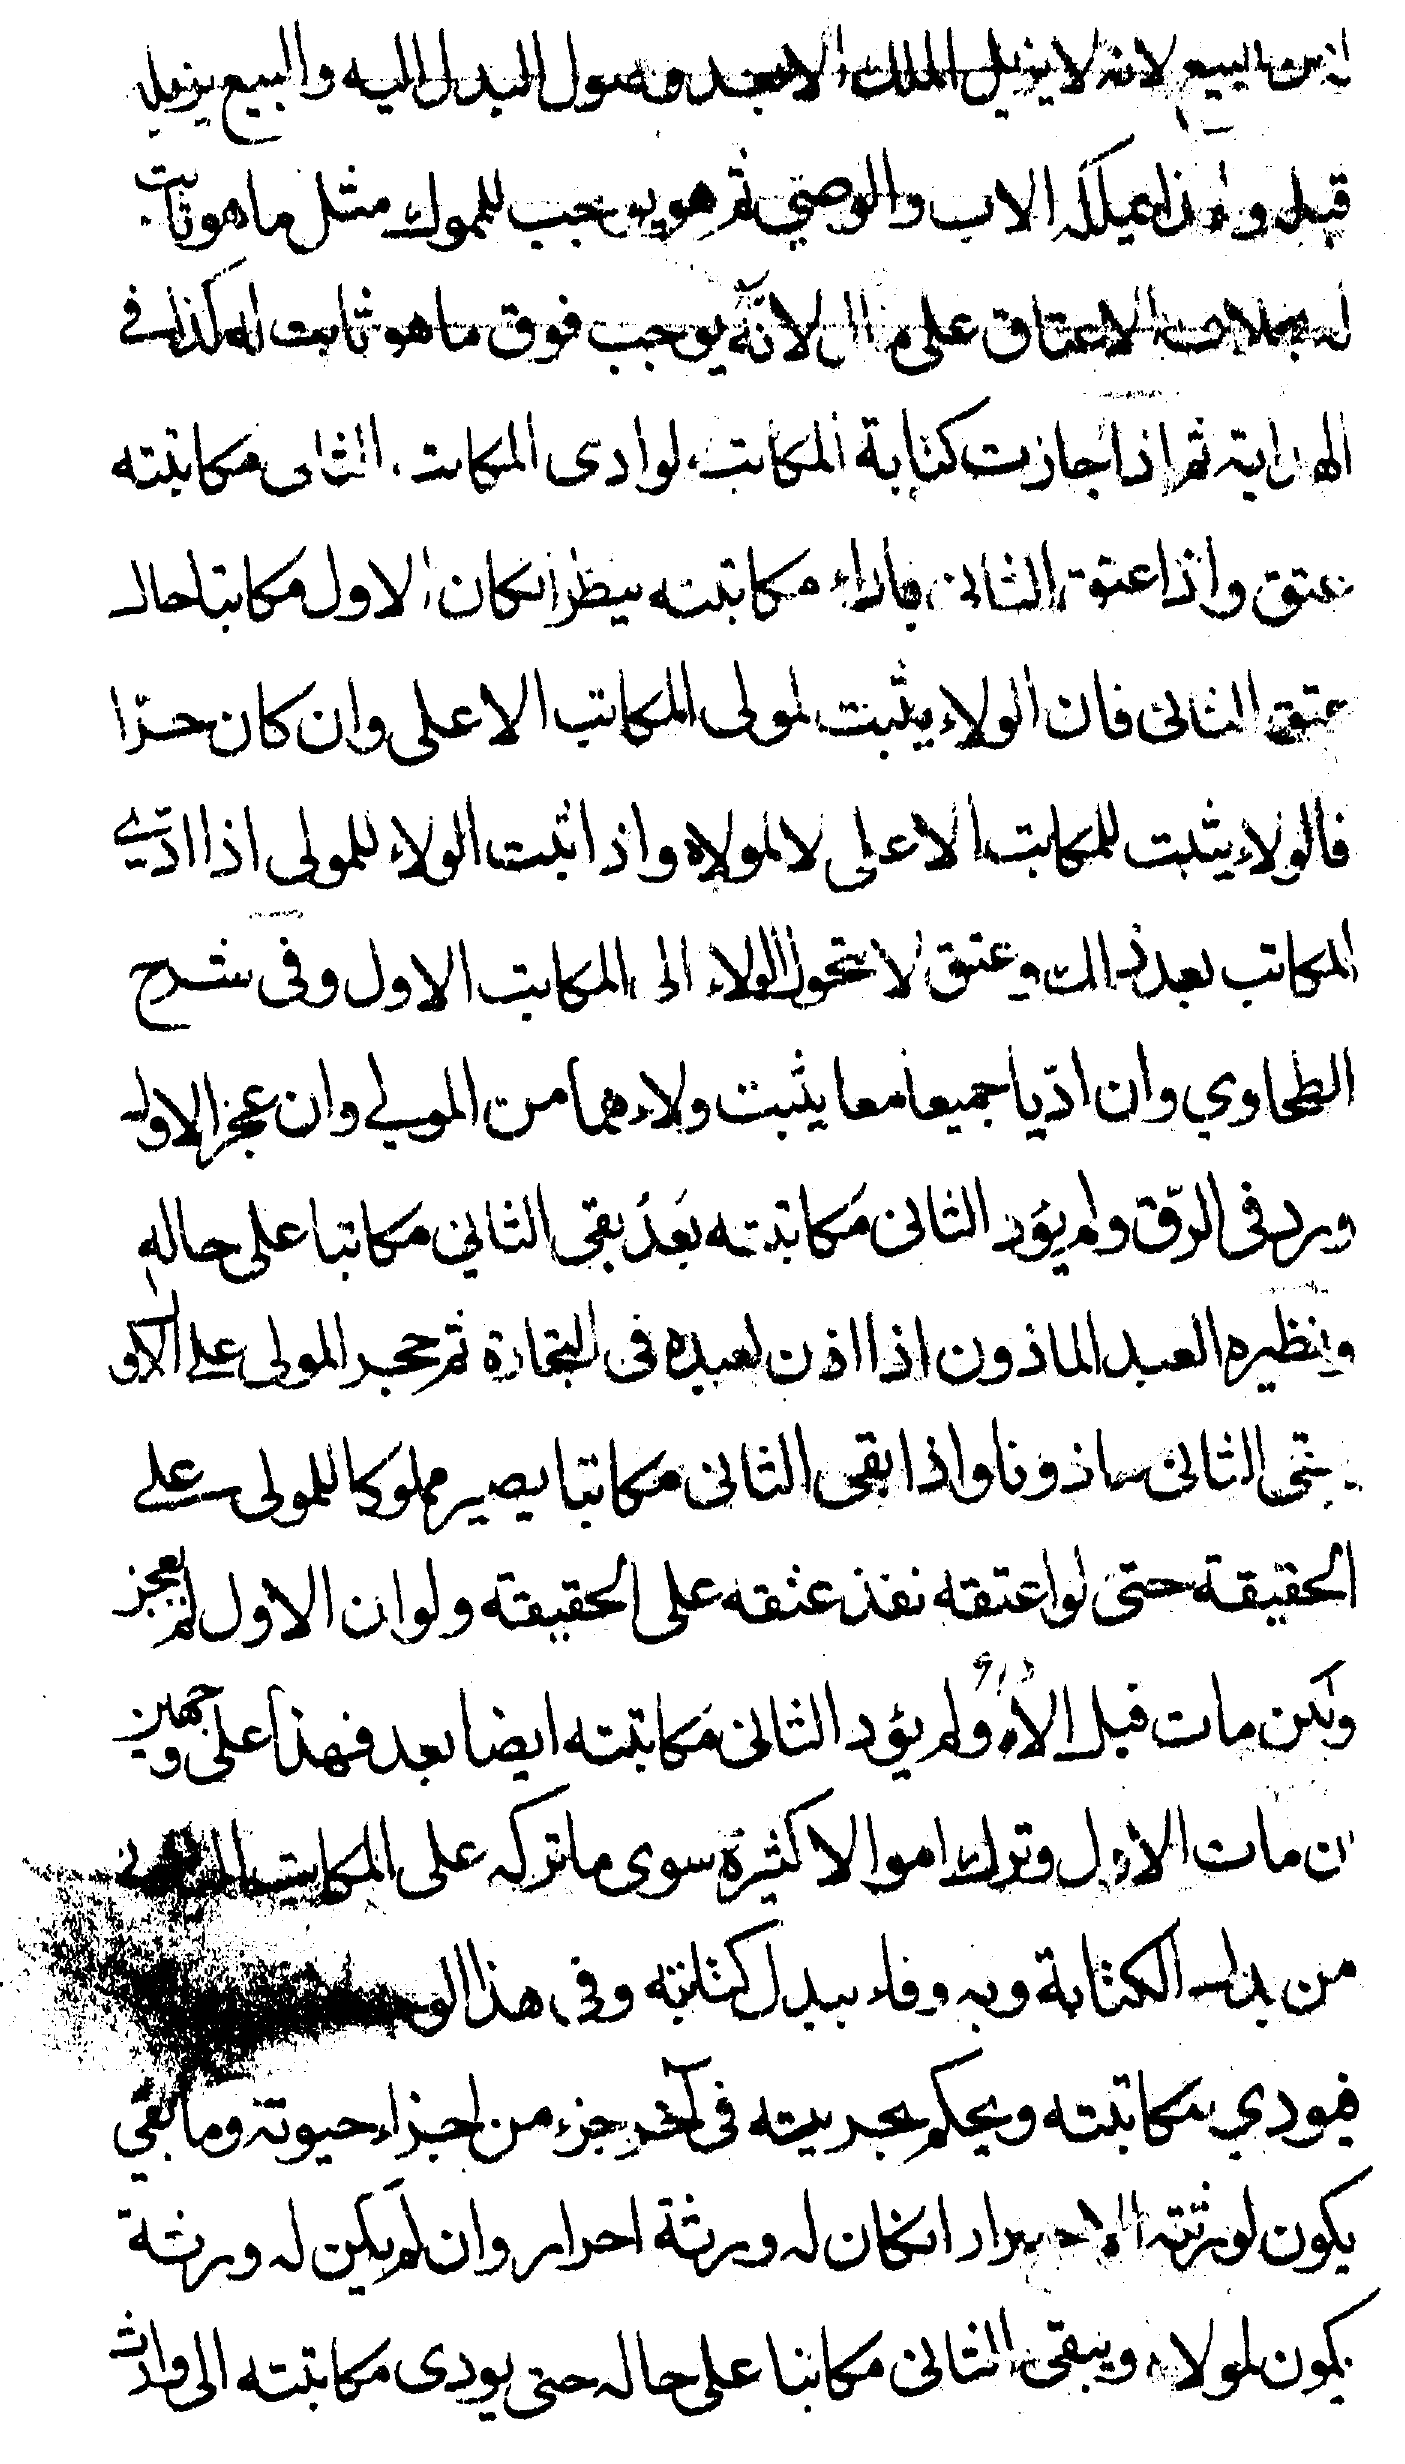 من البيع لانه لا يزيل الملك الا بعد وصول البدل اليه والبيع يزيله
قبله ولهذا يملكه الاب والوصي ثم هو يوجب للمملوك مثل ما هو ثابت
له بخلاف الاعتاق على مال لانه يوجب فوق ما هو ثابت له كذا في
الهداية ثم اذا جازت كتابة المكاتب لو ادى المكاتب الثاني مكاتبته
عتق واذا عتق الثاني باداء مكاتبته ينظر انكان الاول مكاتبا حال
عتق الثاني فان الولاء يثبت لمولى المكاتب الاعلى وان كان حرّا
فالولاء يثبت للمكاتب الاعلى لا لمولاه واذا ثبت الولاء للمولى اذا ادّى
المكاتب بعد ذالك وعتق لا يتحول الولاء الى المكاتب الاول وفى شرح
الطحاوي وان ادّيا جميعا معا يثبت ولاءهما من المولى وان عجز الاول
ورد فى الرّق ولم يؤد الثانى مكاتبته بعد بقى الثاني مكاتبا على حاله
ونظيره العبد الماذون اذا اذن لعبده فى التجارة ثم حجر المولى على الاول
يبقى الثانى ماذونا واذا بقى الثانى مكاتبا يصير مملوكا للمولى على
الحقيقة حتى لو اعتقه نفذ عتقه على الحقيقة ولو ان الاول لم يعجز
ولكن مات قبل الاداء ولم يؤد الثانى مكاتبته ايضا بعد فهذا على وجهين
ان مات الاول وترك اموالا كثيرة سوى ما تركه على المكاتب
من بدل الكتابة وبه وفاء ببدل كتابته وفى هذا الوجه
فيودي مكاتبته ويحكم بحريته فى آخر جزء من اجزاء حيوته وما بقي
يكون لورثته الاحرار انكان له ورثة احرار وان لم يكن له ورثة
يكون لمولاه ويبقى الثانى مكاتبا على حاله حتى يودى مكاتبته الى وارث